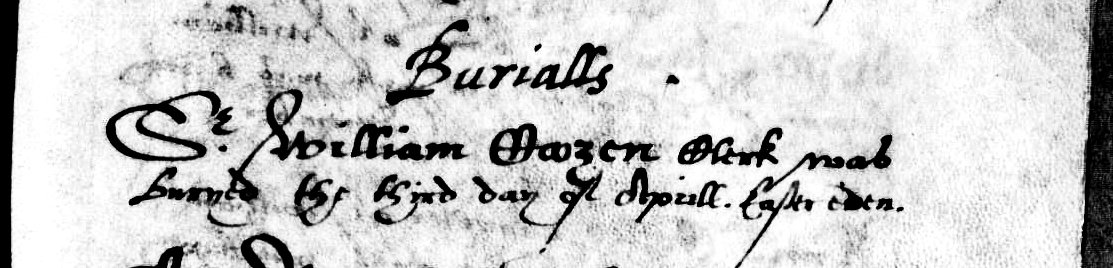 Burialls.
Sr. William Owzen Clerk was
buryed the third day of Aprill. Easter even.